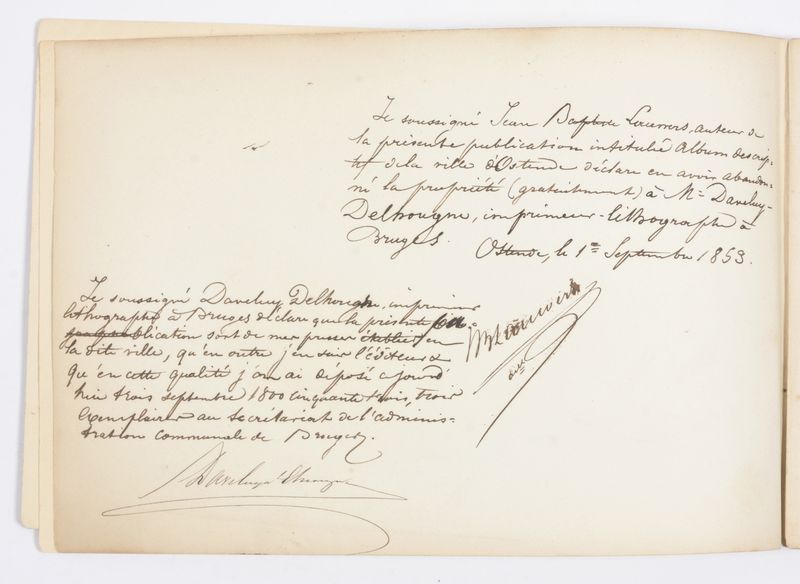 Je soussigné Jean Baptiste Lauwers, auteur de
la présente publication intitulée Album descrip-
tif de la ville d'Ostende déclare en avoir abandon-
né la propriété (gratuitement) à Mr. Daveluy-
Delhougne, imprimeur-lithographe à
Bruges.
Ostende, le 1er Septembre 1853.
Je soussigné Daveluy Delhougne, imprimeur
lithographe à Bruges déclare que la présente
publication sont de mes presses établies en
la dite ville, qu'en outre j'en suis l'éditeur &
qu'en cette qualité j'en ai déposé cejourd'
hui trois septembre 1800 cinquante trois, trois
exemplaires au secrétariat de l'adminis-
tration communale de Bruges.
JBLauwers
Daveluy Delhougne